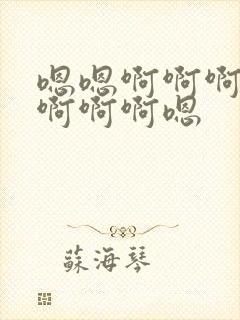 嗯嗯啊啊啊
啊啊啊嗯
蘇海琴